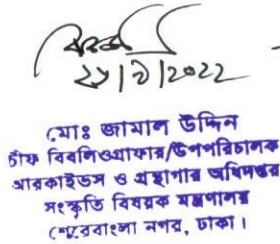 ২১|৩|২০২২
মোঃ জামাল উদ্দিন
চীফ বিবলিওগ্রাফার/উপপরিচালক
আরকাইভস ও গ্রন্থাগার অধিদপ্তর
সংস্কৃতি বিষয়ক মন্ত্রণালয়
শেরেবাংলা নগর, ঢাকা।